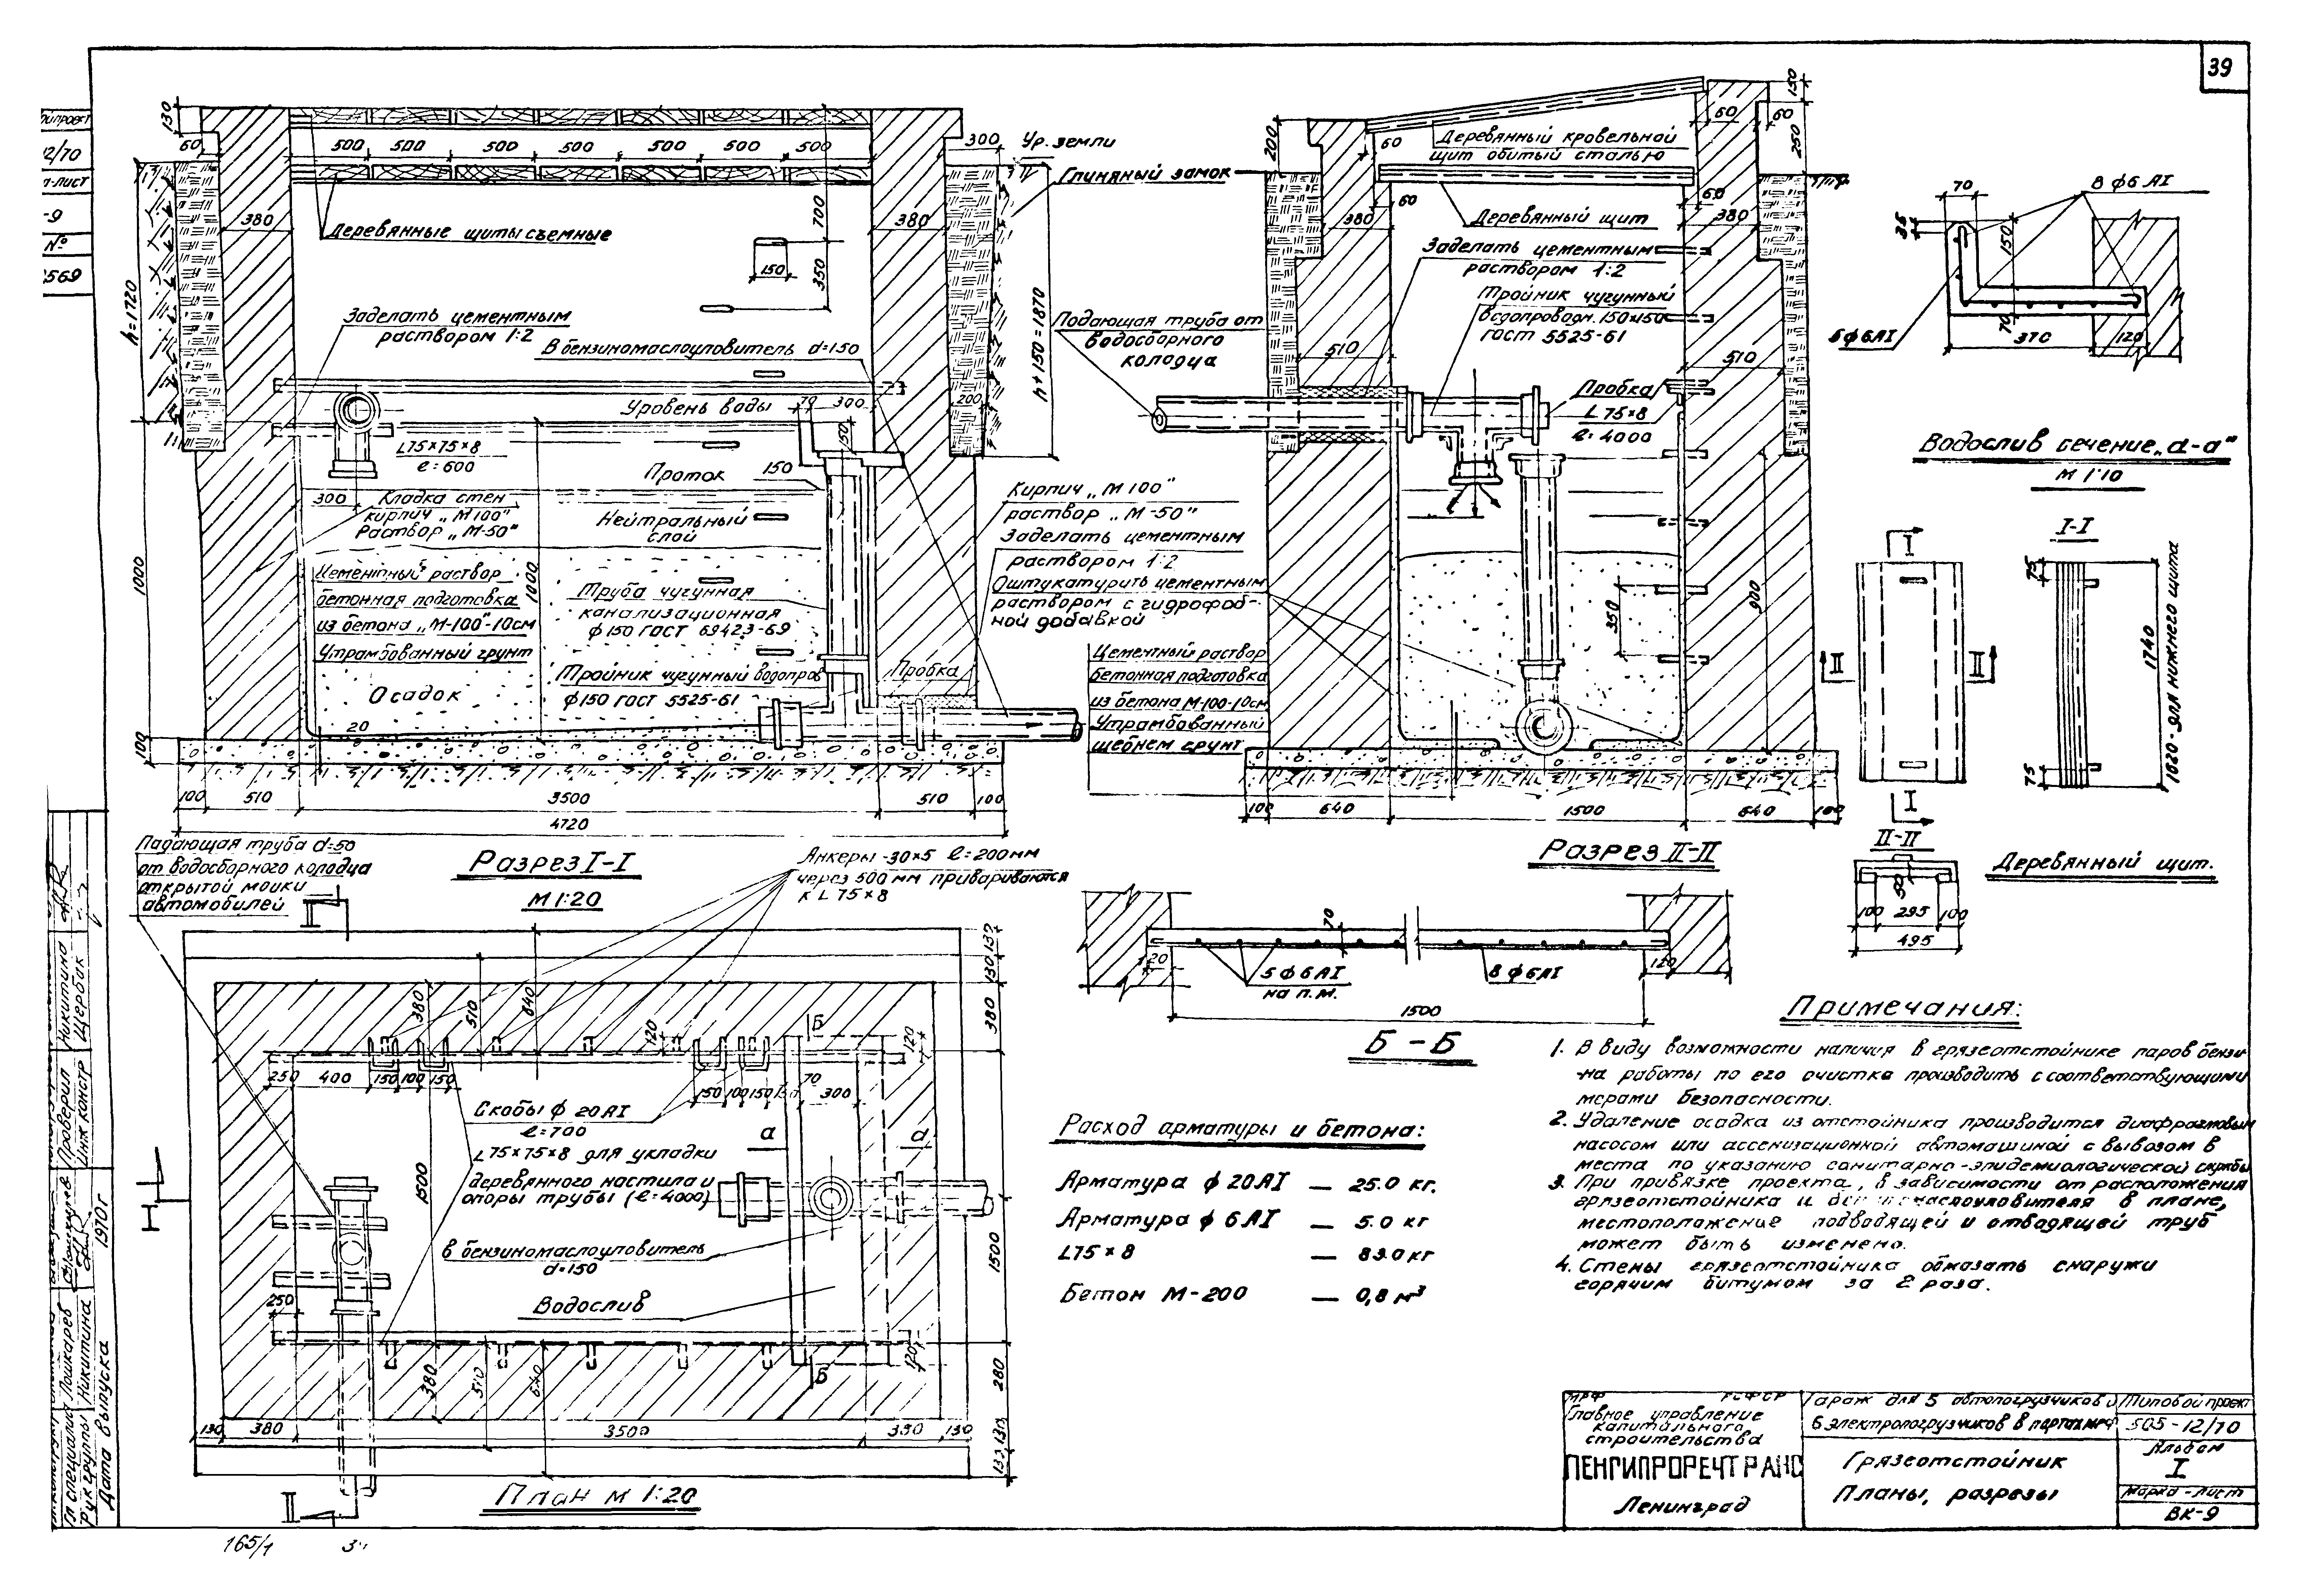 39
12/70
-9
№
Разрез I-I
М 1:20
130
60
500 500 500 500 500 500 500
300
Ур. земли
Глиняный замок
380
380
Деревянные щиты съемные
700
350
150
h=1720
h+150=1870
Заделать цементным
раствором 1:2
В бензиномаслоуловитель d=150
Уровень воды
70 300
200
L75×75×8
ℓ=600
150
Проток
150
300
Кладка стен
кирпич „М100"
Раствор „М-50"
Нейтральный
слой
1000
1000
Цементный раствор
бетонная подготовка
из бетона „М-100"-10см
Утрамбованный грунт
Труба чугунная
канализационная
ф150 ГОСТ 69423-69
Тройник чугунный водопров
ф150 ГОСТ 5525-61
Пробка
Осадок
20
100
100 510 3500 510 100
4720
Кирпич „М100"
раствор „М-50"
Заделать цементным
раствором 1:2
Оштукатурить цементным
раствором с гидрофоб-
ной добавкой
Цементный раствор
Бетонная подготовка
из бетона М-100-10см
Утрамбованный
щебнем грунт
Подающая труба от
водосборного
колодца
200
60
60
60
150
250
Деревянный кровельной
щит обитый сталью
60
60
380
380
Деревянный щит
Заделать цементным
раствором 1:2
Тройник чугунный
водопроводн. 150×150
ГОСТ 5525-61
510
510
Пробка
L75×8
ℓ=4000
350
900
100 640 1500 640 100
Разрез II-II
70
8ф6АI
35
150
70
6ф6АI
370
120
Водослив сечение „а-а"
М 1:10
I
I-I
75
II
II
1740
1620-для нижнего щита
75
I
II-II
50
100 295 100
495
Деревянный щит.
Подающая труба d=50
от водосборного колодца
открытой мойки
автомобилей
II
Анкеры -30×5 ℓ=200мм
через 500 мм привариваются
к L 75×8
380
510
640
120
120
132
130
380
250 400 150 100 150
150 100 150 150 70 300
Б
Скобы ф 20АI
ℓ=700
L75×75×8 для укладки
деревянного настила и
опоры трубы (ℓ=4000)
а
а
1500
1500
I
в бензиномаслоуловитель
d=150
Водослив
250
380
510
640
120
Б
280
130
133
130 380 3500 350 130
II
План М 1:20
70
120
5ф6АI
на п.м.
8ф6АI
120
1500
Б - Б
Расход арматуры и бетона:
Арматура ф 20АI — 25.0 кг.
Арматура ф 6АI — 5.0 кг
L75×8 — 83.0кг
Бетон М-200 — 0,8 м³
Примечания:
1. В виду возможности наличия в грязеотстойнике паров бензи-
на работы по его очистка производить с соответствующими
мерами безопасности.
2. Удаление осадка из отстойника производится диафрагмовым
насосом или ассенизационной автомашиной с вывозом в
места по указанию санитарно-эпидемиологической службы
3. При привязке проекта, в зависимости от расположения
грязеотстойника и в плане,
местоположение подводящей и отводящей труб
может быть изменено.
4. Стены грязеотстойника обмазать снаружи
горячим битумом за 2 раза.
МРФ РСФСР
Главное управление
капитального
строительства
ЛЕНГИПРОРЕЧТРАНС
Ленинград
Гараж для 5 автопогрузчиков и
6 электропогрузчиков в портах МРФ
Грязеотстойник
Планы, разрезы
Типовой проект
505-12/70
Альбом
I
марка-лист
ВК-9
Гл специалист Лошкарев
Рук группы Никитина
Дата выпуска 1970г
Проверил Никитина
Инж констр Щербак
165/1